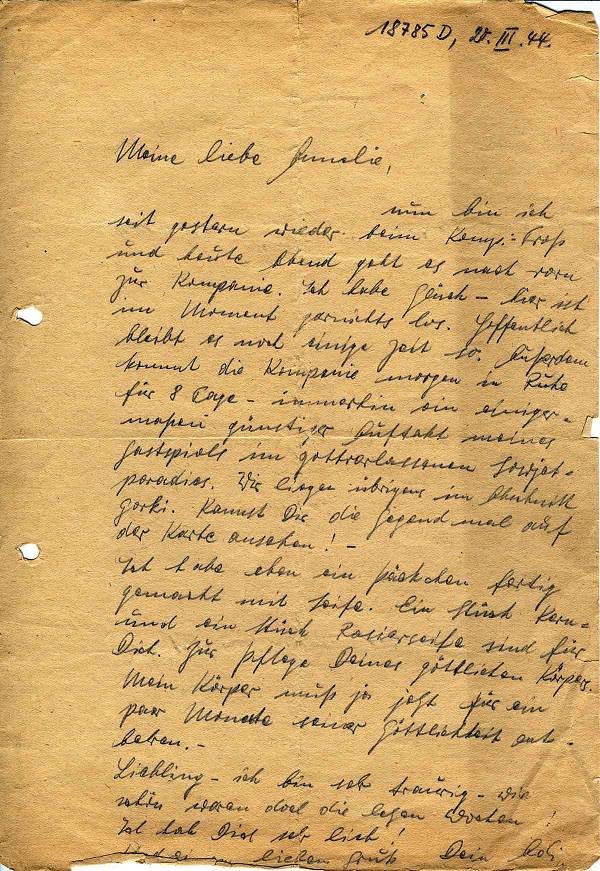 18785 D, 28. III. 44.
Meine liebe Annelie,
nun bin ich
seit gestern wieder beim Komp.-Troß
und heute Abend geht es nach vorn
zur Kompanie. Ich habe Glück – hier ist
im Moment garnichts los. Hoffentlich
bleibt es noch einige Zeit so. Außerdem
kommt die Kompanie morgen in Ruhe
für 8 Tage – immerhin ein einiger-
maßen günstiger Auftakt meines
Gastspiels im gottverlassenen Sowjet-
paradies. Wir liegen übrigens im Abschnitt
Gorki. Kannst Dir die Gegend mal auf
der Karte ansehen! –
Ich habe eben ein Päckchen fertig
gemacht mit Seife. Ein Stück Kern-
und ein Stück Rasierseife sind für
Dich. Zur Pflege Deines göttlichen Körpers.
Mein Körper muß ja jetzt für ein
paar Monate seiner Göttlichkeit ent-
behren. –
Liebling – ich bin sehr traurig – wie
schön waren doch die letzten Wochen!
Ich hab Dich sehr lieb!
lieben Gruß Dein